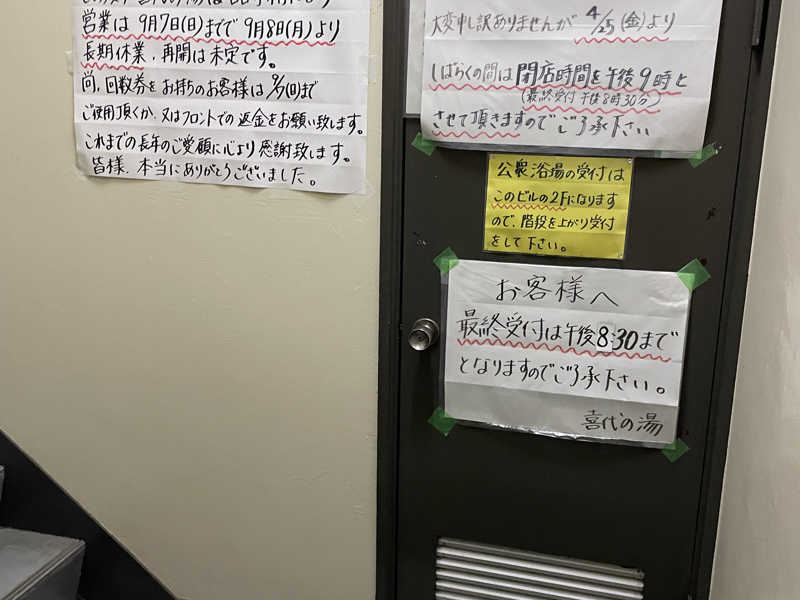 営業は 9月7日(日)までで 9月8日(月)より
長期休業、再開は未定です。
尚、回数券をお持ちのお客様は 9/7(日)まで
ご使用頂くか、又はフロントでの返金をお願い致します。
これまでの長年のご愛顧に心より感謝致します。
皆様、本当にありがとうございました。
大変申し訳ありませんが 4/25(金)より
しばらくの間は閉店時間を午後9時と
(最終受付 午後8時30分)
させて頂きますのでご了承下さい
公衆浴場の受付は
このビルの2Fになります
ので、階段を上がり受付
をして下さい。
お客様へ
最終受付は午後8:30まで
となりますのでご了承下さい。
喜代の湯